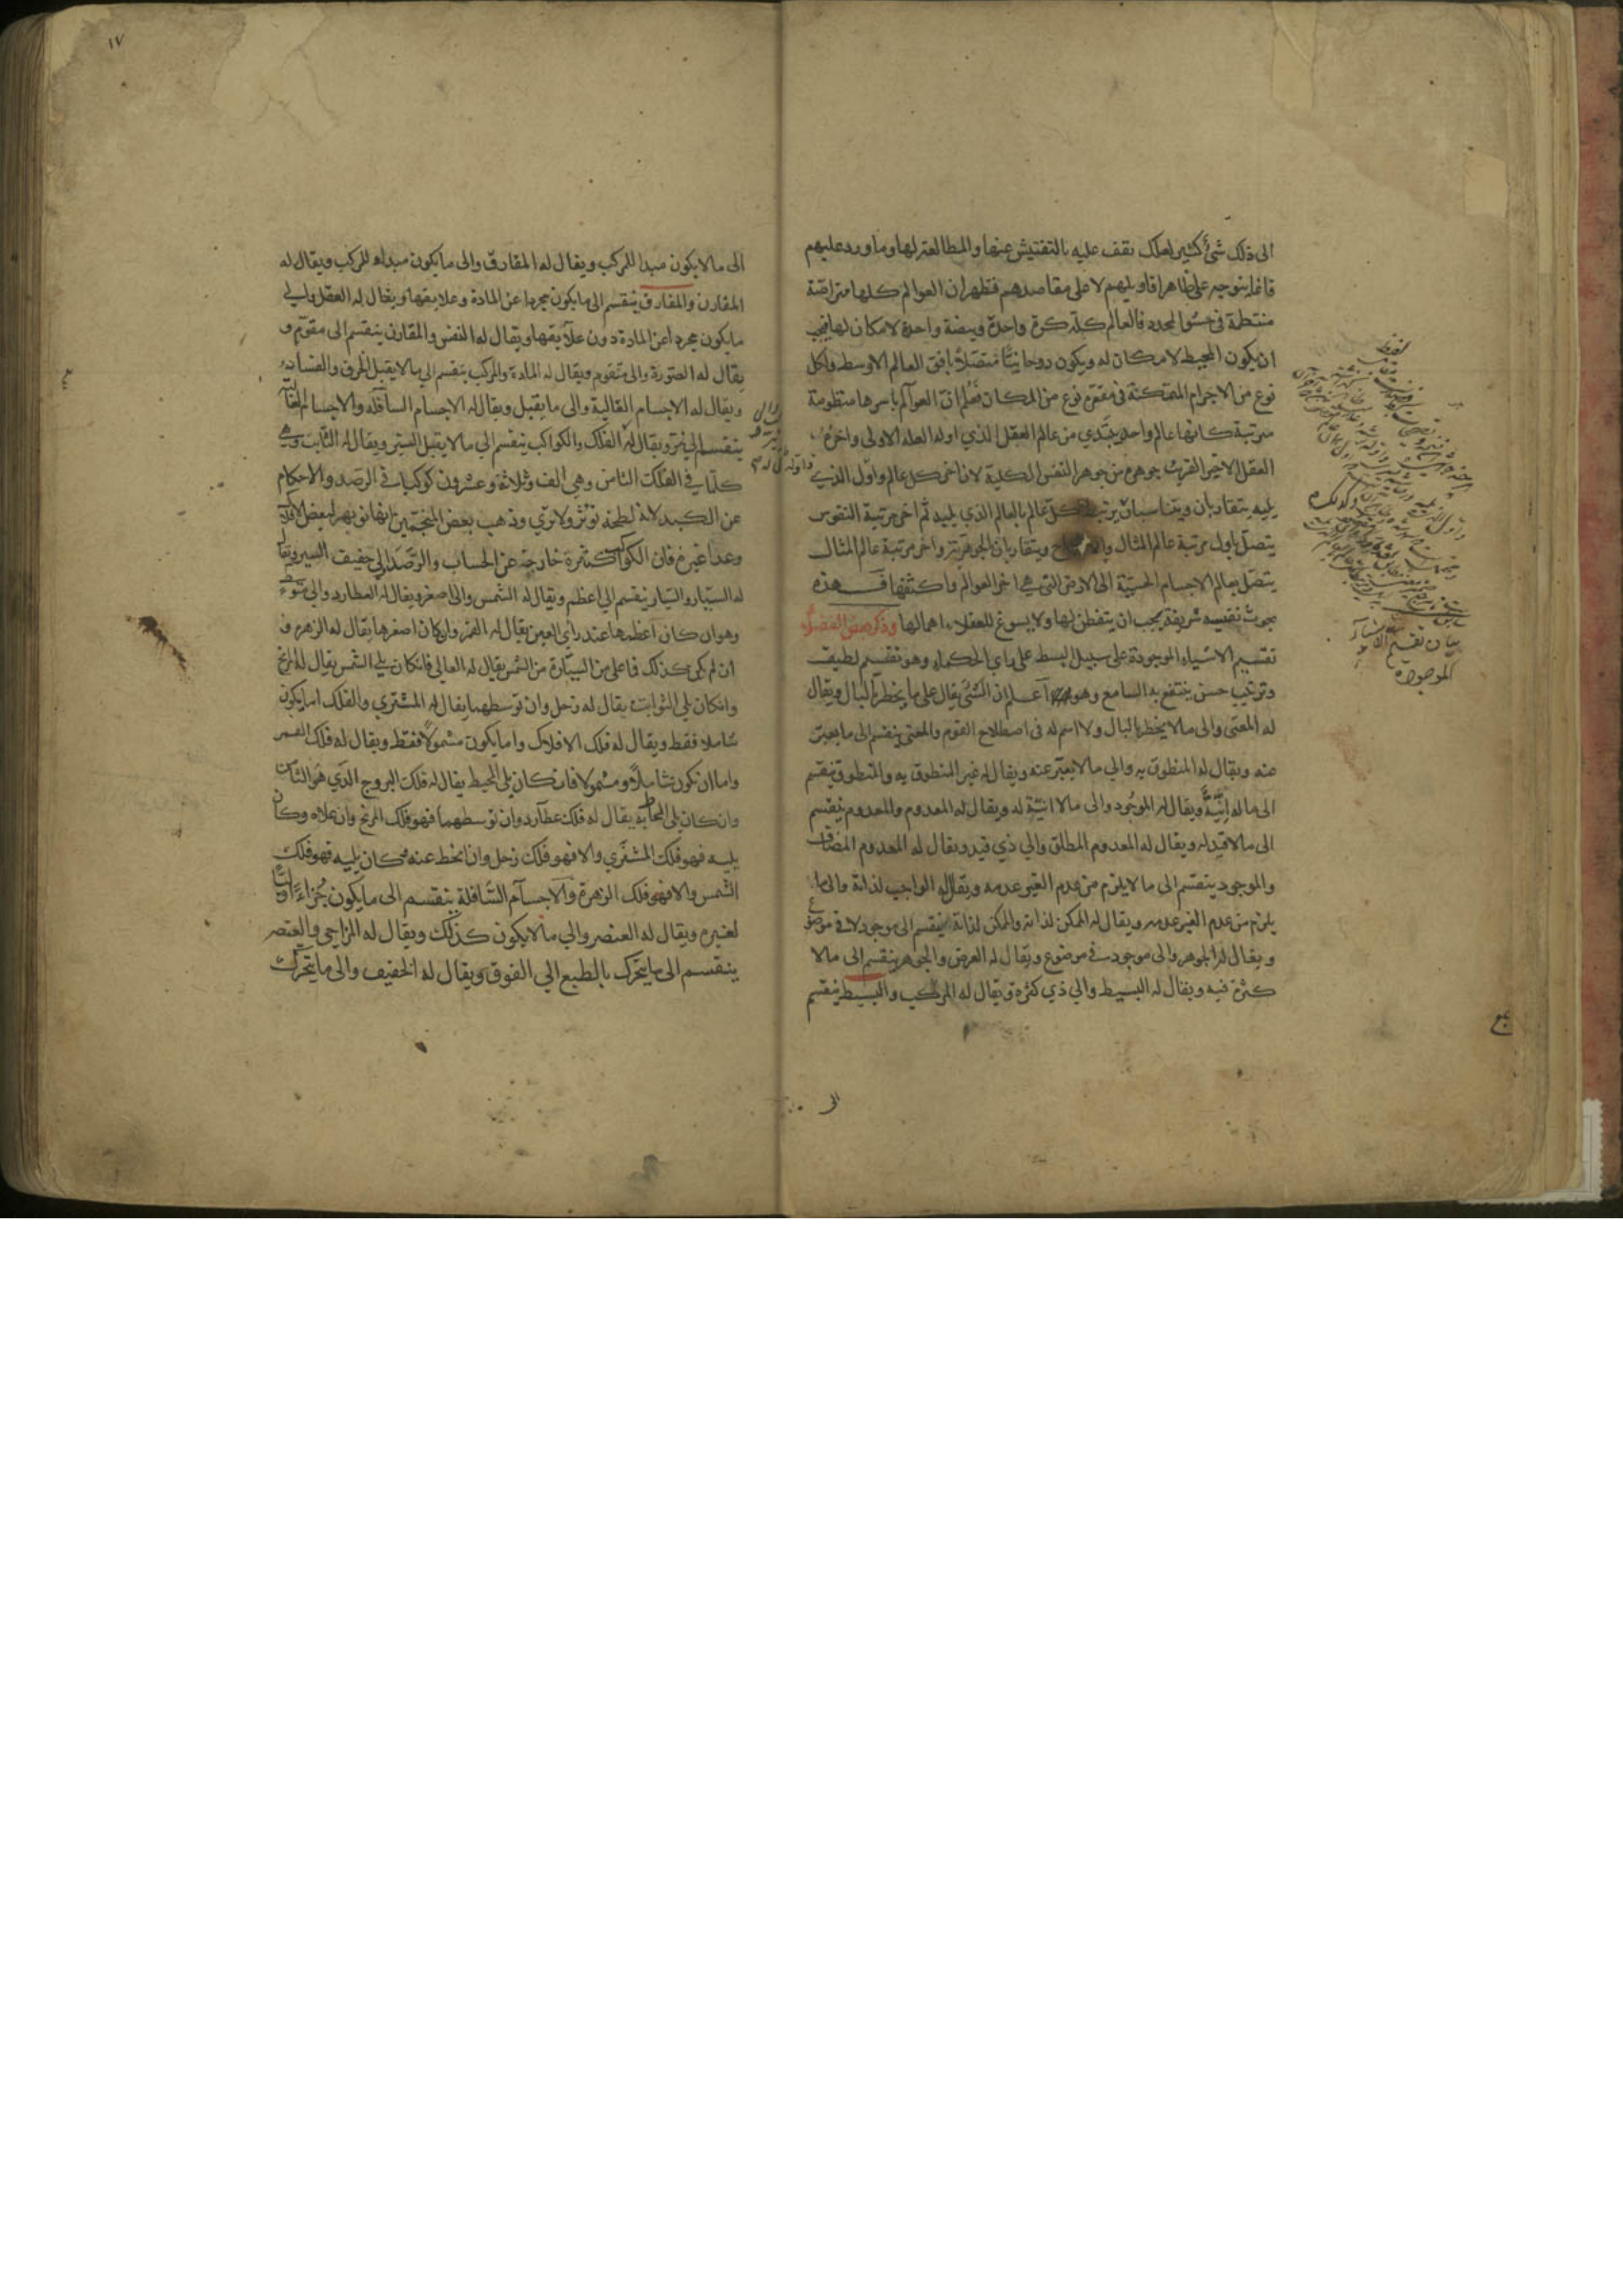 الى ذلك شئ كثير لعلك تقف عليه بالتفتيش عنها والمطالعة لها وما ورد عليهم
فانما يتوجه على ظاهر اقاويلهم لا على مقاصدهم فظهر ان العوالم كلها متراصّة
منتظمة فى حشو المحدد فالعالم كله كرة واحدة وبيضة واحدة لا مكان لها فيجب
ان يكون المحيط لا مكان له ويكون روحانيّا متصلا بافق العالم الاوسط ولكل
نوع من الاجرام المتمكنة فى مقعره نوع من المكان فعلم ان العوالم باسرها منظومة
مرتبة كانها عالم واحد يبتدي من عالم العقل الذي اوله العلة الاولي واخره
العقل الاخير القريب جوهره من جوهر النفس الكلية لان اخر كل عالم واول الذي
يليه يتقاربان ويتناسبان يرتبط كل عالم بالعالم الذي يليه ثم اخر مرتبة النفوس
يتصل باول مرتبة عالم المثال ويتقاربان بالجوهرية واخر مرتبة عالم المثال
يتصل بعالم الاجسام الحسيّة الى الارض التى هي اخر العوالم واكثفها فهذه
بحوث نفيسه شريفة يجب ان يتفطن لها ولا يسوغ للعقلاء اهمالها وذكر بعض الفضلاء
تقسيم الاشياء الموجودة على سبيل البسط على راى الحكماء وهو تقسيم لطيف
وترتيب حسن ينتفع به السامع وهو اعلم ان الشئ يقال على ما يخطر بالبال ويقال
له المعنى والى مالا يخطر بالبال ولا اسم له فى اصطلاح القوم والمعنى ينقسم الى ما يعبر
عنه ويقال له المنطوق به والي مالا يعبّر عنه ويقال له غير المنطوق به والمنطوق ينقسم
الى ما له انيّة ويقال له الموجود والى مالا انيّة له ويقال له المعدوم والمعدوم ينقسم
الى مالا قيد له ويقال له المعدوم المطلق والي ذي قيد ويقال له المعدوم المضاف
والموجود ينقسم الى مالا يلزم من عدم الغير عدمه ويقال له الواجب لذاته والى ما
يلزم من عدم الغير عدمه ويقال له الممكن لذاته والممكن لذاته ينقسم الى موجود لا في موضوع
ويقال له الجوهر والى موجود في موضوع ويقال له العرض والجوهر ينقسم الى مالا
كثرة فيه ويقال له البسيط والي ذي كثرة ويقال له المركب والبسيط ينقسم
بيان تقسيم الاشياء
الموجودة
الى
١٧
الى مالا يكون مبدا للمركب ويقال له المفارق والى ما يكون مبداء للمركب ويقال له
المقارن والمفارق ينقسم الى ما يكون مجردا عن المادة وعلايقها ويقال له العقل والي
ما يكون مجردا عن المادة دون علايقها ويقال له النفس والمقارن ينقسم الى مقوّم و
يقال له الصّورة والى متقوم ويقال له المادة والمركب ينقسم الي مالا يقبل الخرق والفساد
ويقال له الاجسام العالية والى ما يقبل ويقال له الاجسام السافله والاجسام العالية
ينقسم الى نيّر ويقال له الفلك والكواكب ينقسم الي مالا يقبل السير ويقال له الثابت وهي
كلها في الفلك الثامن وهي الف وثلاثة وعشرون كوكبا في الرصد والاحكام
عن الكبد لانه لطخه تؤثر ولا ترى وذهب بعض المنجمين
وعدا غيره فان الكواكب كثيرة خارجة عن الحساب والرّصد الي خفيف السير ويقال
له السيّار والسّيار ينقسم الي اعظم ويقال له الشمس والى اصغر ويقال له العطارد والي متوسط
وهو ان كان اعظمها عند راي العين يقال له القمر وان كان اصغرها يقال له الزهره و
ان لم يكن كذلك فاعلى من السيّارة من الشمس يقال له العالي فان كان يلي الشمس يقال له المريخ
وان كان يلي الثوابت يقال له زحل وان توسطهما يقال له المشتري والفلك اما يكون
شاملا فقط ويقال له فلك الافلاك واما يكون مشمولا فقط ويقال له فلك القمر
واما ان يكون شاملا ومشمولا فان كان يلي المحيط يقال له فلك البروج الذي هو الثامن
وان كان يلي المحاط به يقال له فلك عطارد وان توسطهما فهو فلك المريخ وان علاه وكان
يليه فهو فلك المشتري والا فهو فلك زحل وان انحط عنه وكان يليه فهو فلك
الشمس والا فهو فلك الزهرة والاجسام السّافلة ينقسم الى ما يكون جُزاءً اولًّا
لغيره ويقال له العنصر والي مالا يكون كذلك ويقال له المزاجي والعنصر
ينقسم الى ما يتحرك بالطبع الي الفوق ويقال له الخفيف والى ما يتحرك